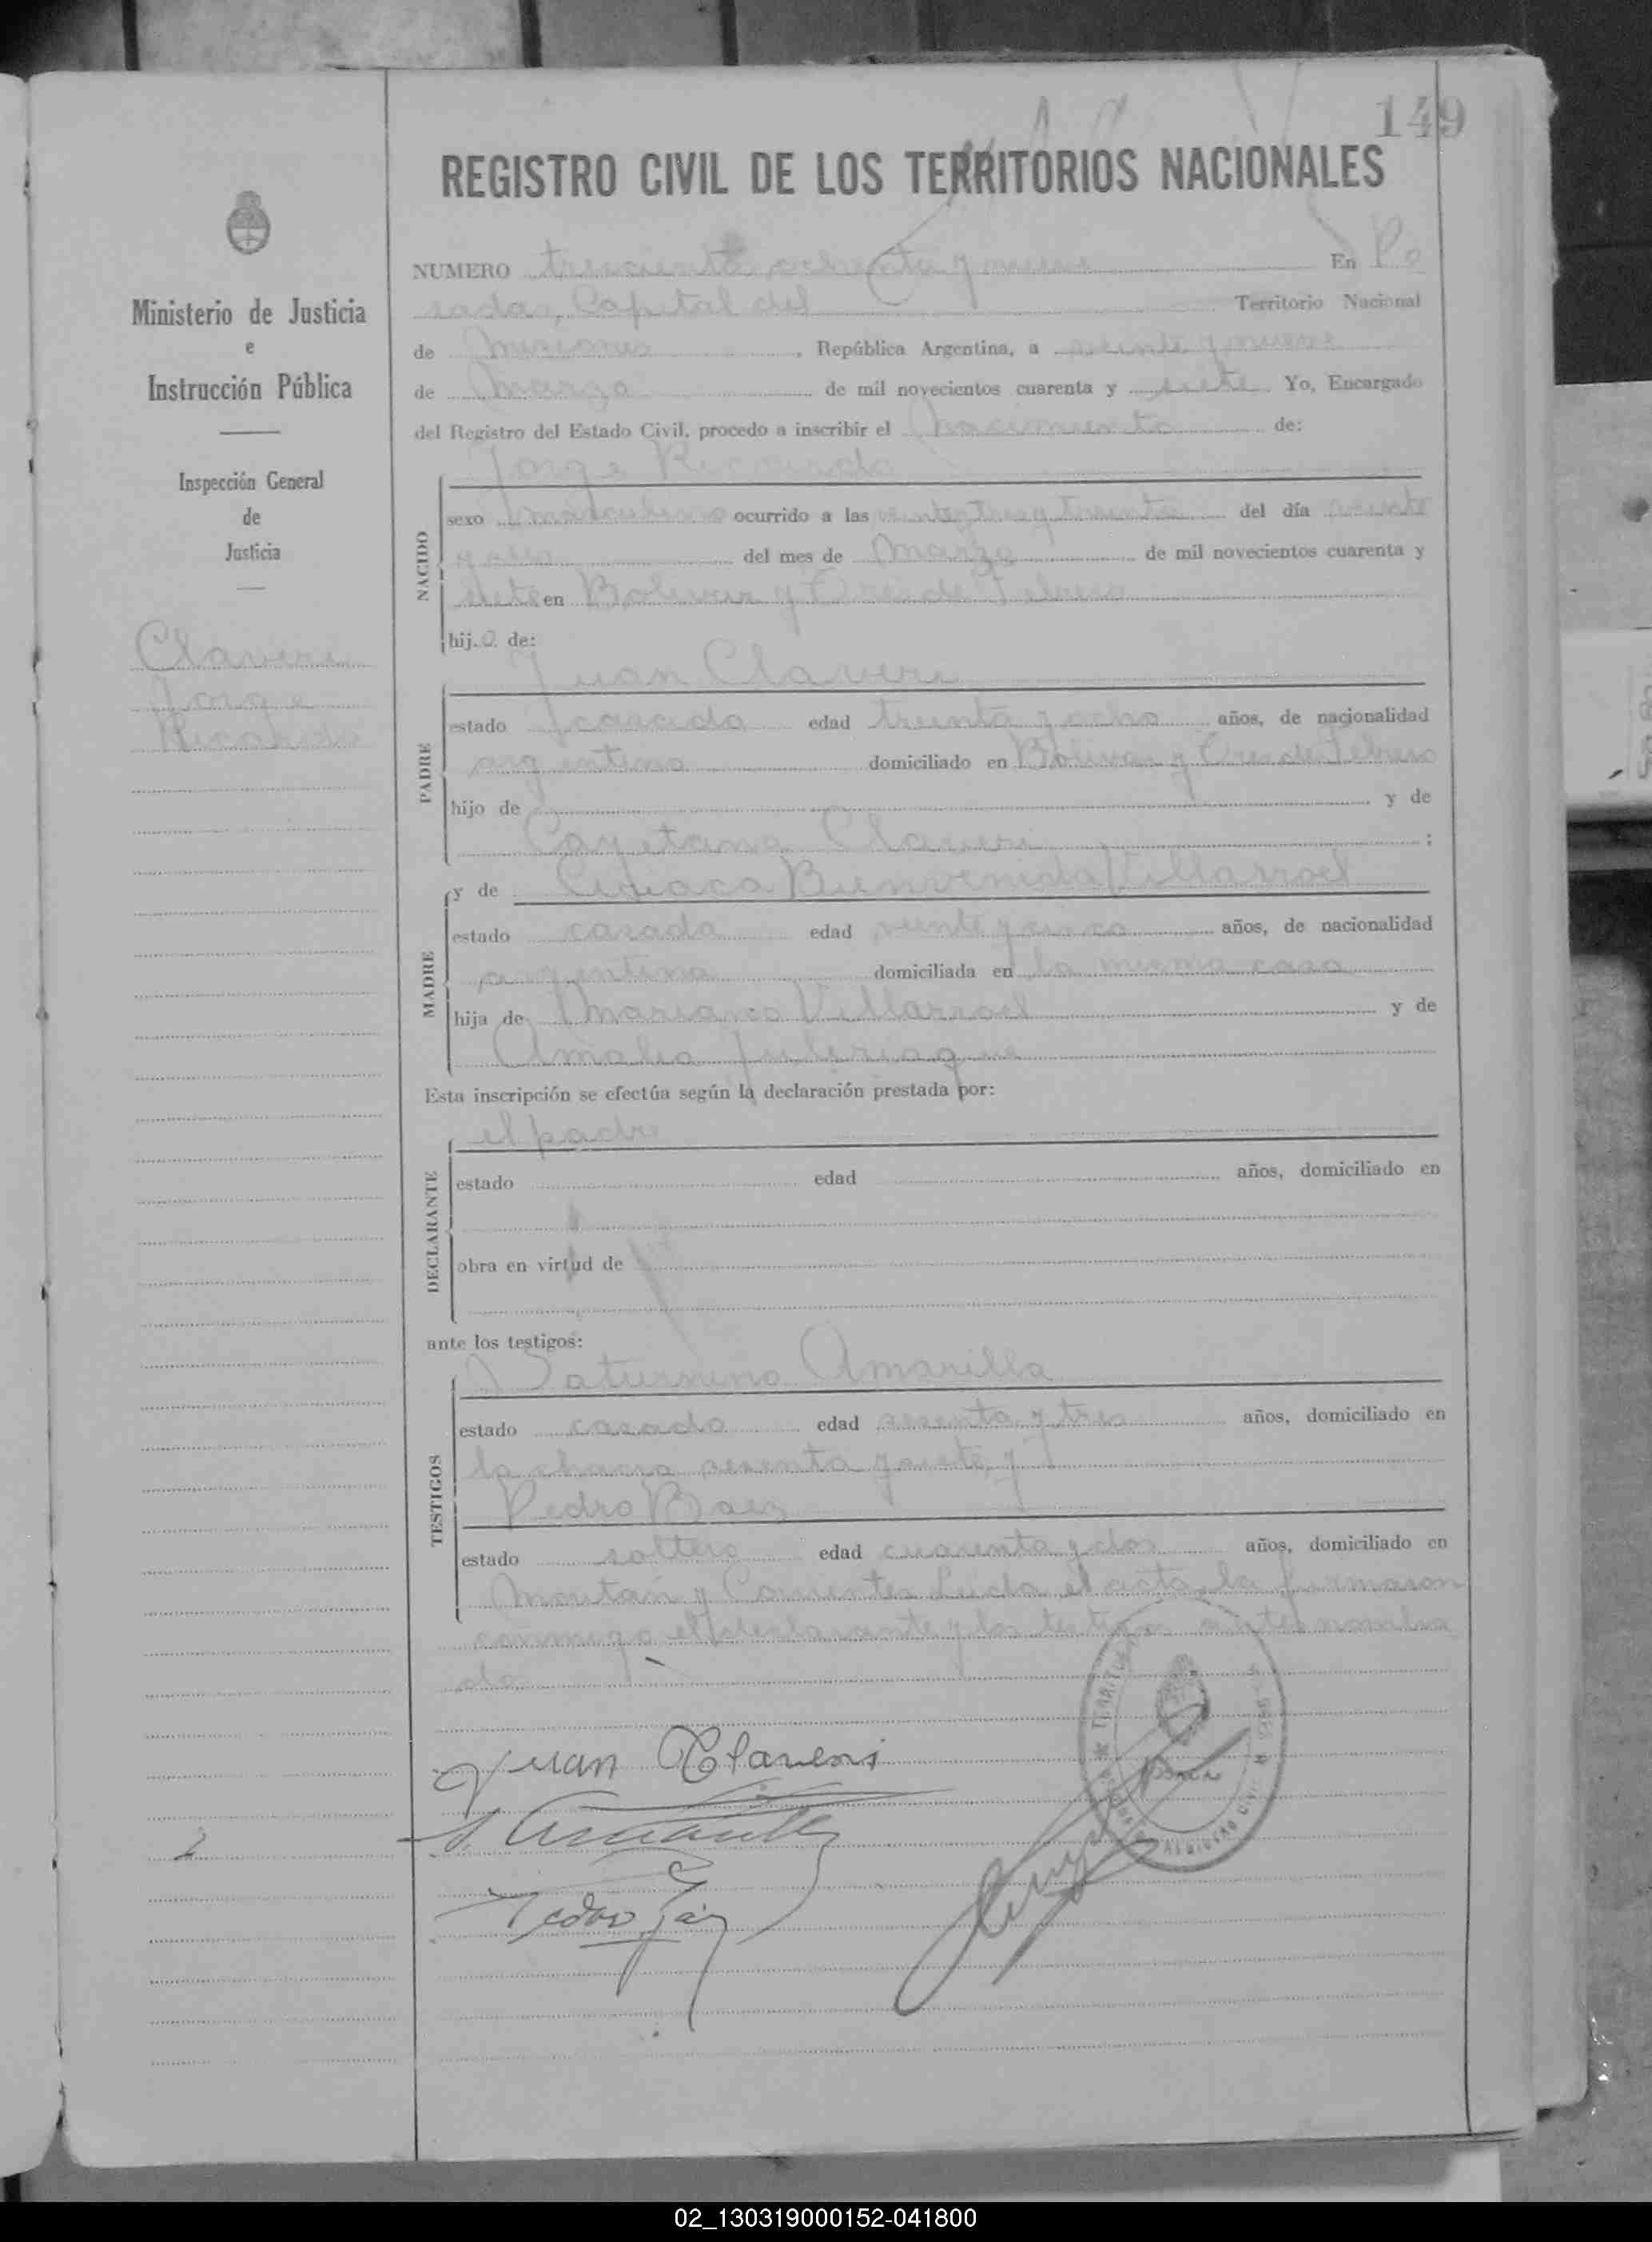 149
REGISTRO CIVIL DE LOS TERRITORIOS NACIONALES
Ministerio de Justicia
e
Instrucción Pública
Inspección General
de
Justicia
Claveri
Jorge
Ricardo
NUMERO trescientos ochenta y nueve En Po
sadas, Capital del Territorio Nacional
de Misiones, República Argentina, a veinte y nueve
de Marzo de mil novecientos cuarenta y siete Yo, Encargado
del Registro del Estado Civil, procedo a inscribir el Nacimiento de:
Jorge Ricardo
NACIDO
sexo masculino ocurrido a las veinte tres y treinta del día veinte
y ocho del mes de Marzo de mil novecientos cuarenta y
siete en Bolivar y Tres de Febrero
hijo de:
Juan Claveri
PADRE
estado casado edad treinta y ocho años, de nacionalidad
argentina domiciliado en Bolivar y Tres de Febrero
hijo de y de
Cayetana Claveri ;
y de Ciriaca Bienvenida Villarroel
MADRE
estado casada edad veinte y cinco años, de nacionalidad
argentina domiciliada en la misma casa
hija de Mariano Villarroel y de
Amalia
Esta inscripción se efectúa según la declaración prestada por:
el padre
DECLARANTE
estado edad años, domiciliado en
obra en virtud de
ante los testigos:
Saturnino Amarilla
TESTIGOS
estado casado edad sesenta y tres años, domiciliado en
la chacra sesenta y siete, y
Pedro Baez
estado soltero edad cuarenta y dos años, domiciliado en
y Corrientes Leida el acta, la firmaron
conmigo el declarante y los testigos antes nombra
do
Juan Claveri
S. Amarilla
Pedro Baez
2
02_130319000152-041800